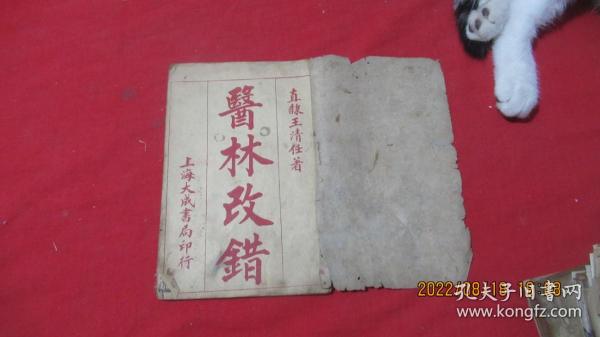 直隸王清任著
醫林改錯
上海大成書局印行
2022/08/18
孔夫子旧书网
www.kongfz.com